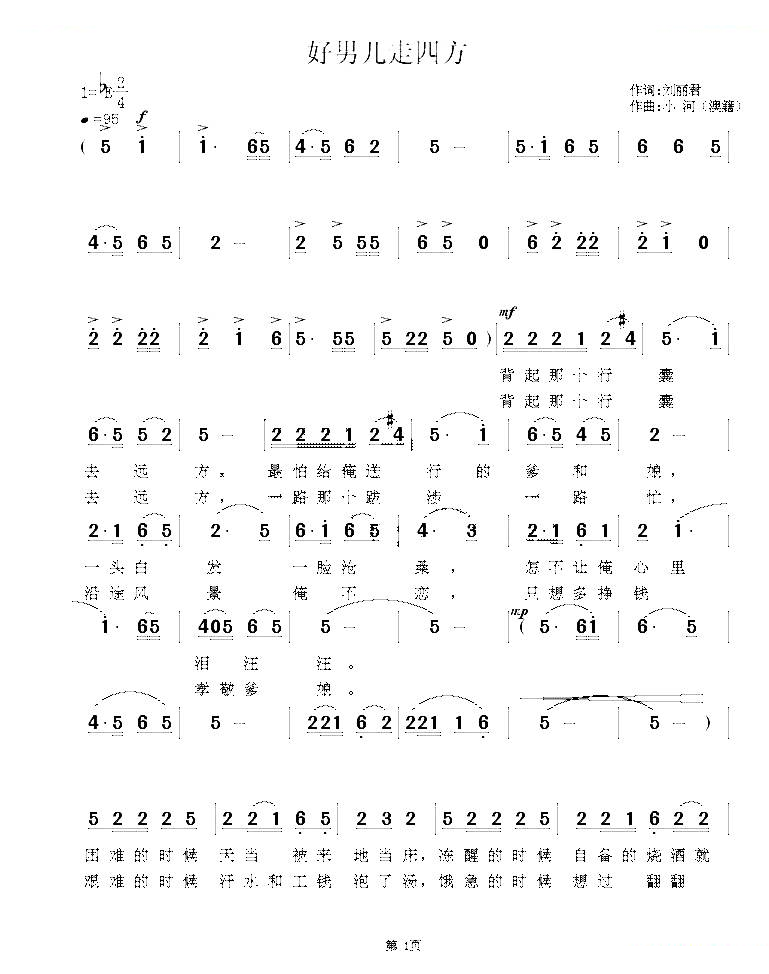 好男儿走四方
1=♭E 2/4
作词:刘丽君
作曲:小 河(澳籍)
♩=95 f
( 5 1 1· 65 4·5 6 2 5 — 5·1 6 5 6 6 5
4·5 6 5 2 — 2 5 55 6 5 0 6 2 22 2 1 0
mf
2 2 22 2 1 6 5· 55 5 22 5 0 ) 2 2 2 1 2 #4 5· 1
背起那个行 囊
背起那个行 囊
6·5 5 2 5 — 2 2 2 1 2 #4 5· 1 6·5 4 5 2 —
去 远 方。 最怕给俺送 行 的 爹 和 娘,
去 远 方, 一路那个跋 涉 一 路 忙,
2·1 6 5 2· 5 6·1 6 5 4· 3 2·1 6 1 2 1·
一头白 发 一脸沧 桑, 怎不让俺心 里
沿途风 景 俺 不 恋, 只想多挣钱
mp
1· 65 405 6 5 5 — 5 — ( 5· 61 6· 5
泪 汪 汪。
孝敬爹 娘。
4·5 6 5 5 — 221 6 2 221 1 6 5 — 5 — )
5 2 2 2 5 2 2 1 6 5 2 3 2 5 2 2 2 5 2 2 1 6 2 2
困难的时候 天当 被来 地当床,冻醒的时候 自备的烧酒就
艰难的时候 汗水和工钱 泡了汤,饿急的时候 想过 翻翻
第 1页